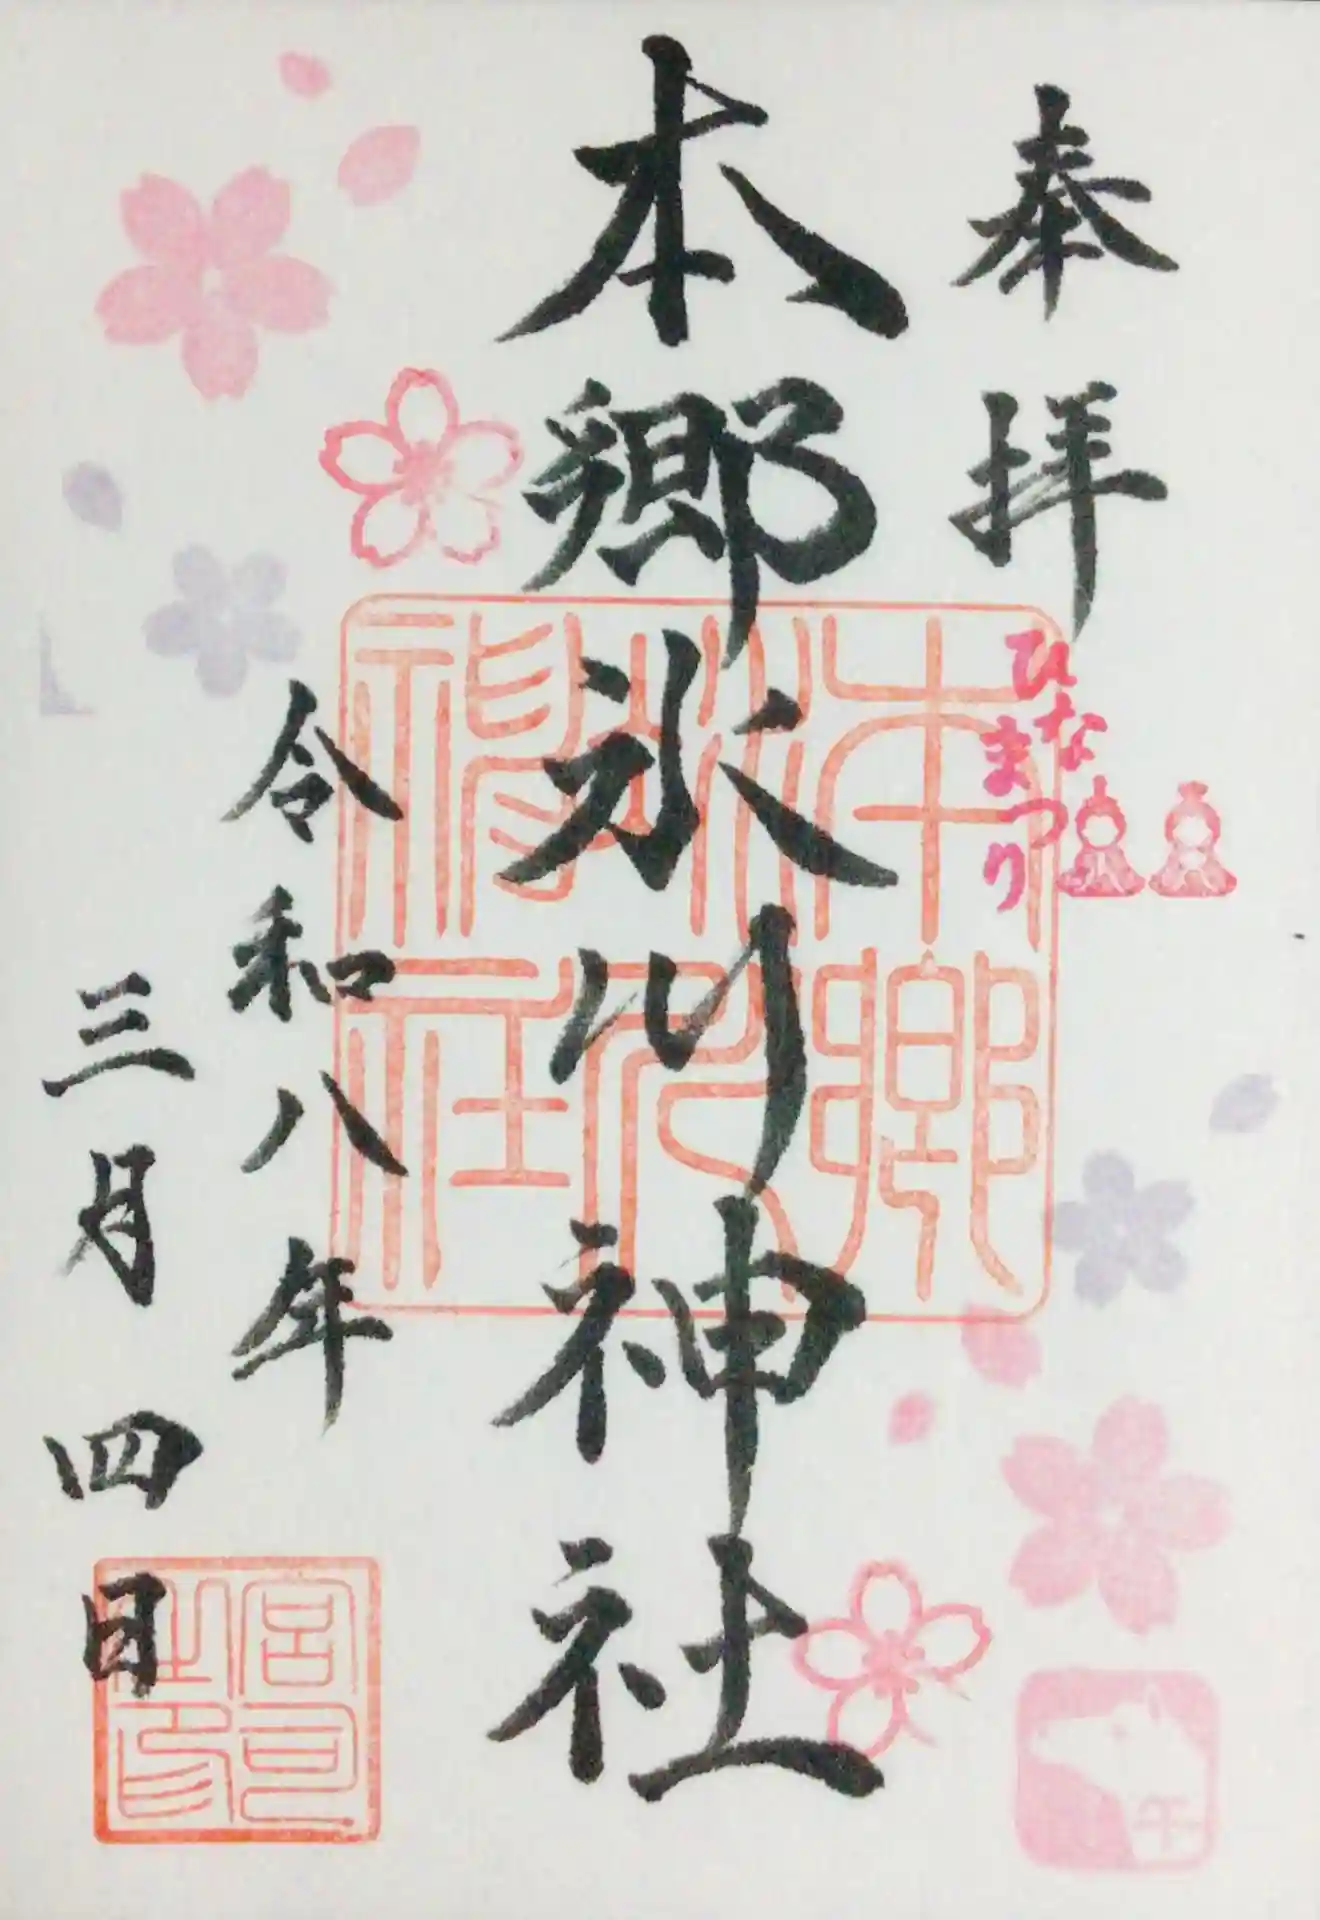 奉拝
ひな
まつり
本郷氷川神社
令和八年
三月四日
本郷
氷川
神社
宮司
之印
午